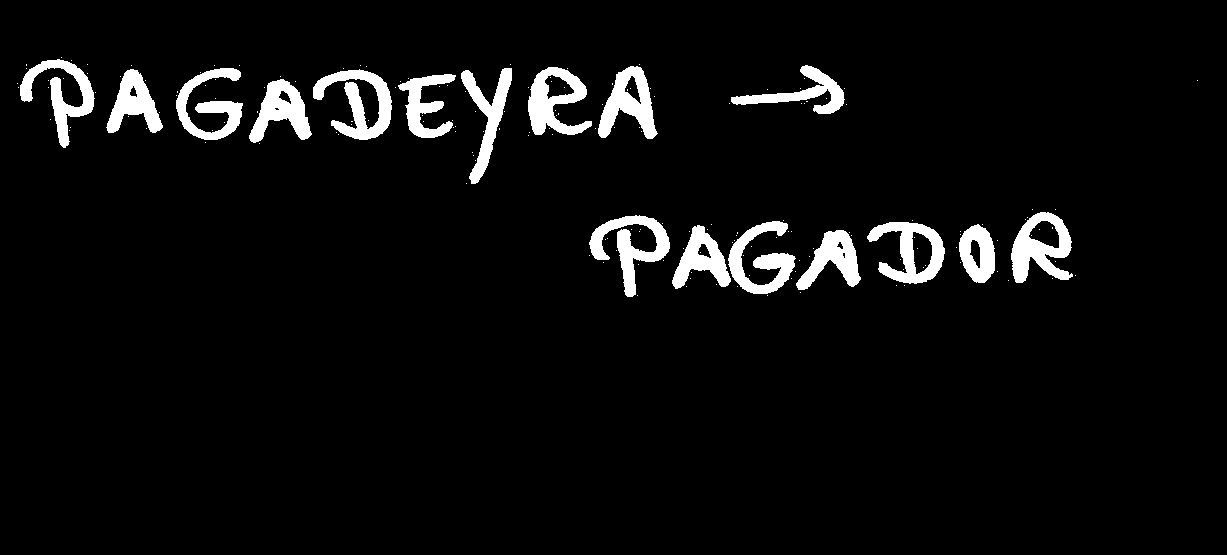 PAGADEYRA →
PAGADOR